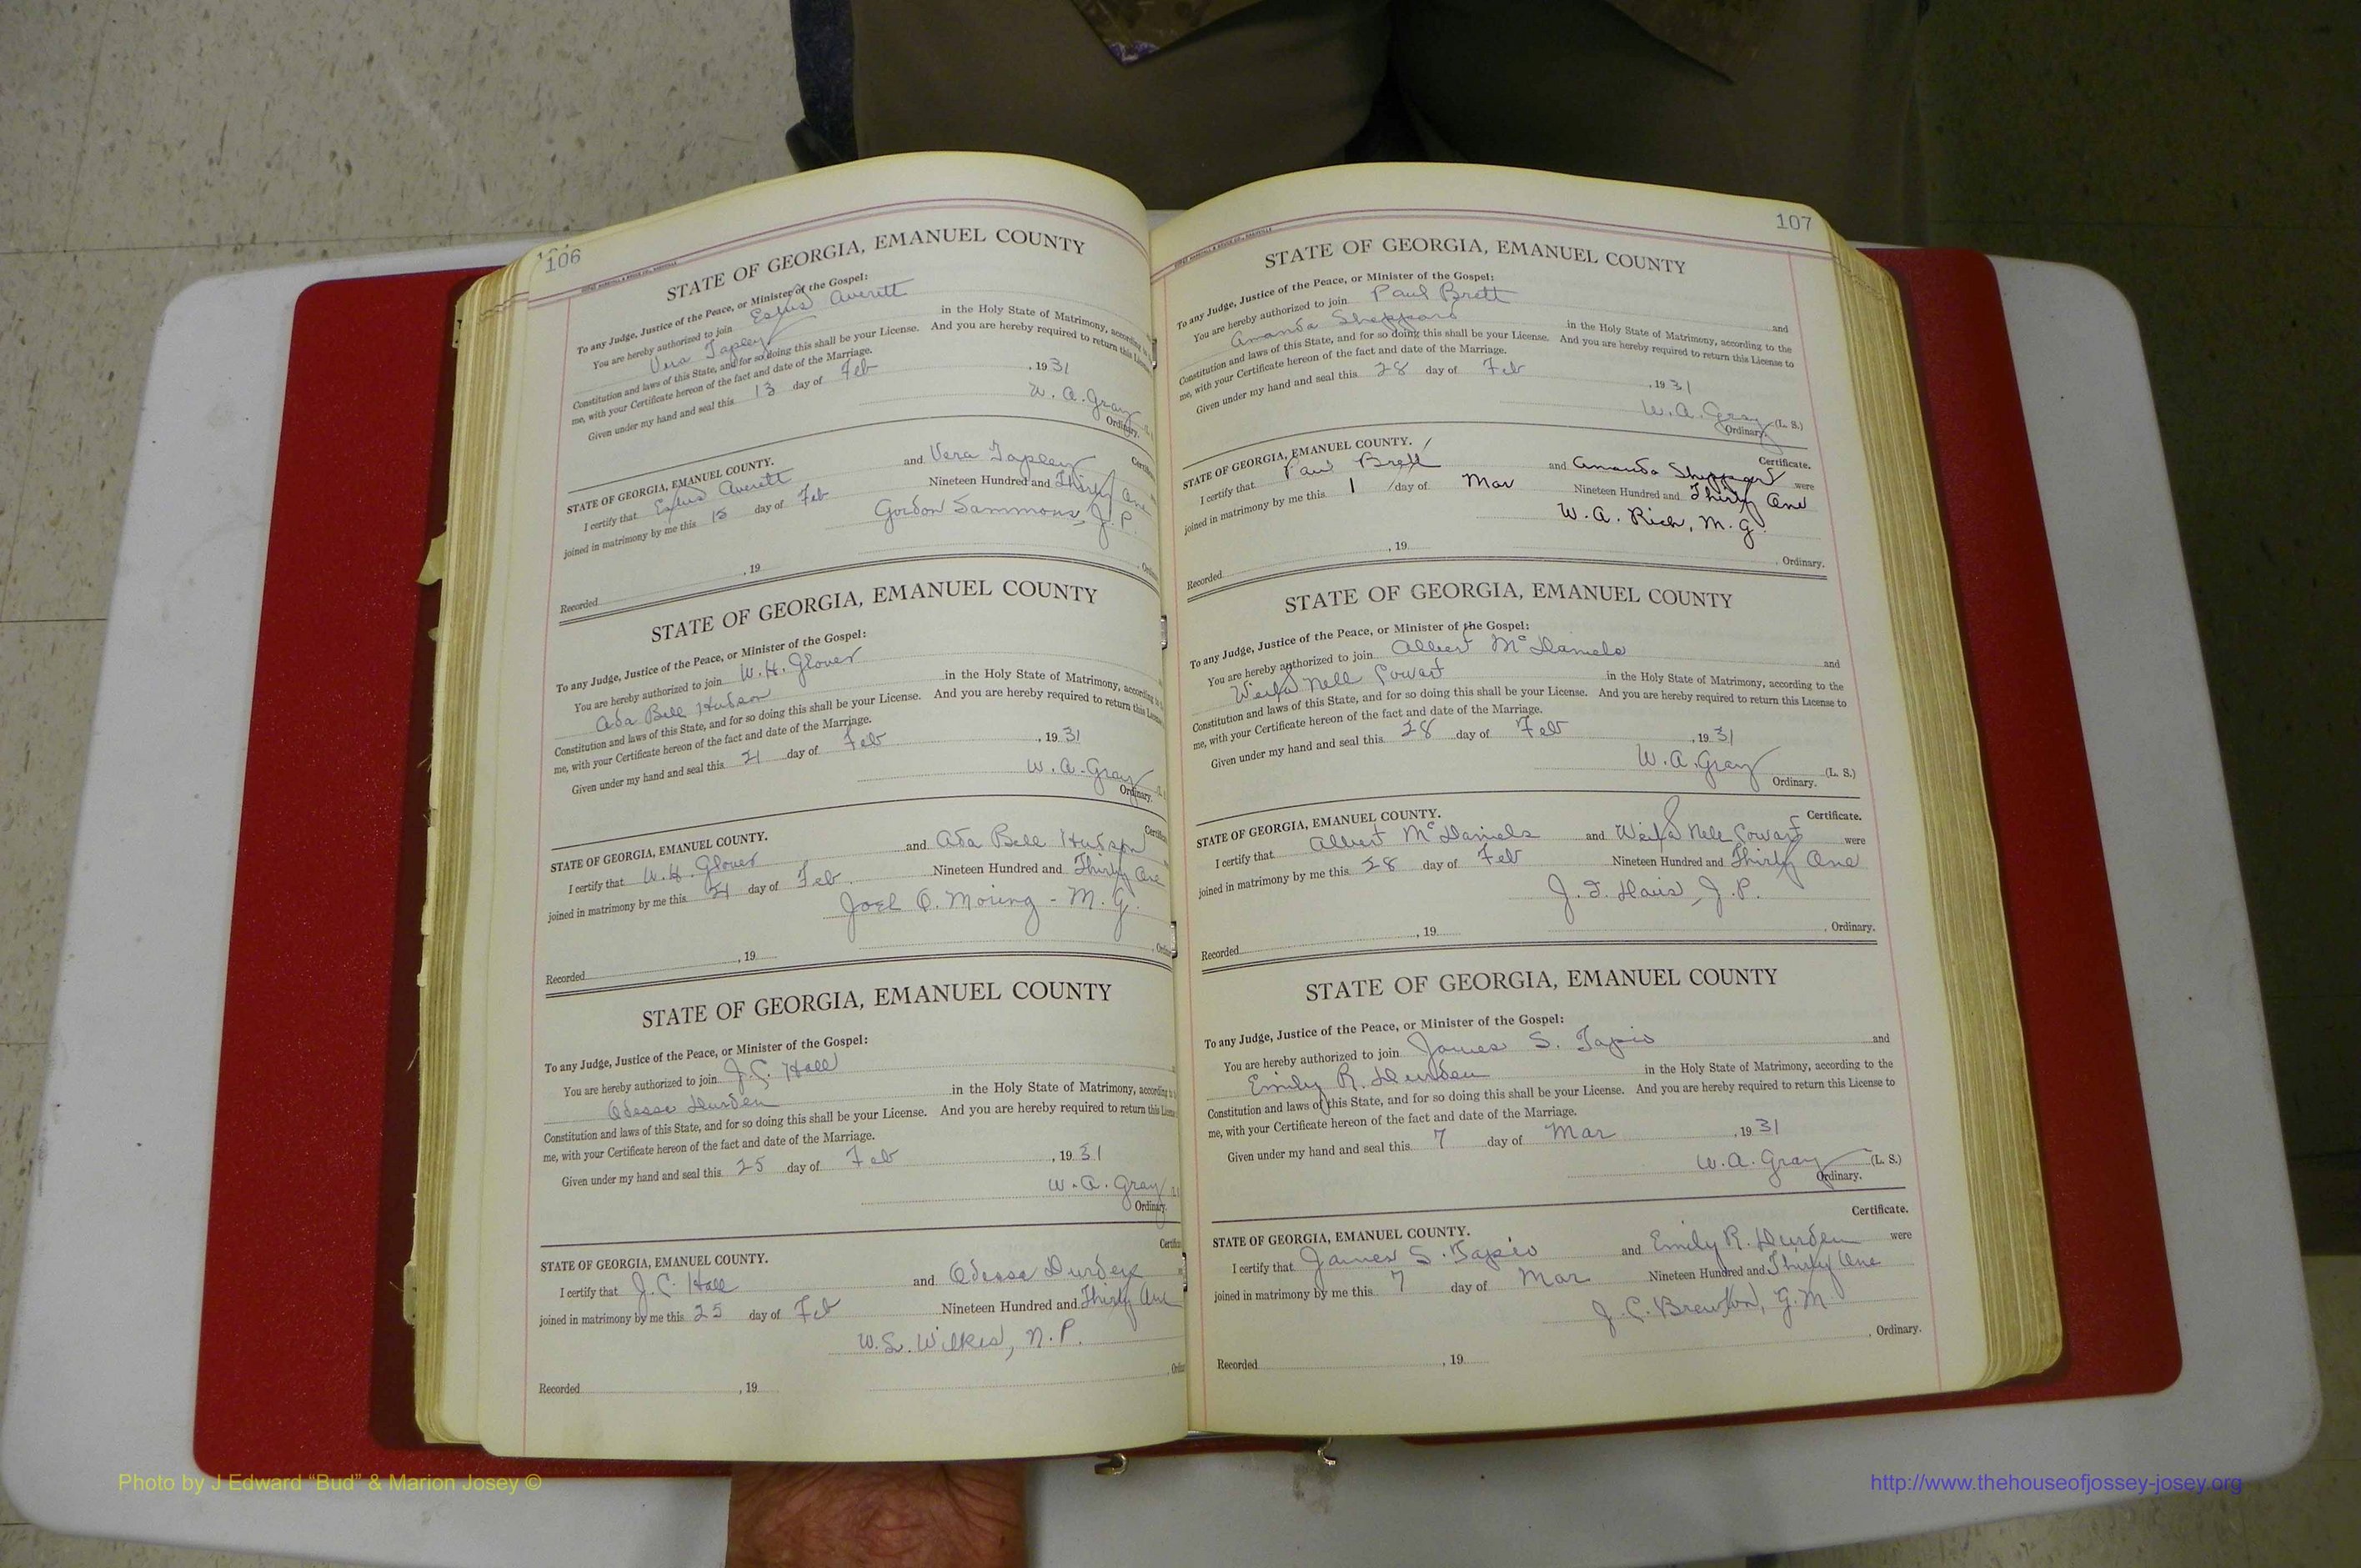 106
STATE OF GEORGIA, EMANUEL COUNTY
To any Judge, Justice of the Peace, or Minister of the Gospel:
You are hereby authorized to join Averett
Vera Tapley in the Holy State of Matrimony, according to
Constitution and laws of this State, and for so doing this shall be your License. And you are hereby required to return this
me, with your Certificate hereon of the fact and date of the Marriage.
Given under my hand and seal this 13 day of Feb , 19 31
W. A. Gray
Ordinary.
Certific
STATE OF GEORGIA, EMANUEL COUNTY.
I certify that Averett and Vera Tapley
joined in matrimony by me this 15 day of Feb Nineteen Hundred and Thirty One
Gordon Sammons, J. P.
Recorded , 19
STATE OF GEORGIA, EMANUEL COUNTY
To any Judge, Justice of the Peace, or Minister of the Gospel:
You are hereby authorized to join W. H. Glover
Ada Bell Hudson in the Holy State of Matrimony, according to
Constitution and laws of this State, and for so doing this shall be your License. And you are hereby required to return this
me, with your Certificate hereon of the fact and date of the Marriage.
Given under my hand and seal this 21 day of Feb , 19 31
W. A. Gray
Ordinary.
STATE OF GEORGIA, EMANUEL COUNTY.
I certify that W. H. Glover and Ada Bell Hudson
joined in matrimony by me this 21 day of Feb Nineteen Hundred and Thirty One
Joel O. Moring - M. G.
Recorded , 19
STATE OF GEORGIA, EMANUEL COUNTY
To any Judge, Justice of the Peace, or Minister of the Gospel:
You are hereby authorized to join J. C. Hall
Odesse Durden in the Holy State of Matrimony, according
Constitution and laws of this State, and for so doing this shall be your License. And you are hereby required to return this
me, with your Certificate hereon of the fact and date of the Marriage.
Given under my hand and seal this 25 day of Feb , 19 31
W. A. Gray
Ordinary.
STATE OF GEORGIA, EMANUEL COUNTY.
I certify that J. C. Hall and Odesse Durden
joined in matrimony by me this 25 day of Feb Nineteen Hundred and Thirty One
W. L. Wilkes, N. P.
Recorded , 19
107
STATE OF GEORGIA, EMANUEL COUNTY
To any Judge, Justice of the Peace, or Minister of the Gospel:
You are hereby authorized to join Paul Brett and
Amanda Sheppard in the Holy State of Matrimony, according to the
Constitution and laws of this State, and for so doing this shall be your License. And you are hereby required to return this License to
me, with your Certificate hereon of the fact and date of the Marriage.
Given under my hand and seal this 28 day of Feb , 19 31
W. A. Gray (L. S.)
Ordinary.
Certificate.
STATE OF GEORGIA, EMANUEL COUNTY.
I certify that Paul Brett and Amanda Sheppard were
joined in matrimony by me this 1 day of Mar Nineteen Hundred and Thirty One
W. A. Rich, M. G.
Recorded , 19 , Ordinary.
STATE OF GEORGIA, EMANUEL COUNTY
To any Judge, Justice of the Peace, or Minister of the Gospel:
You are hereby authorized to join Albert McDaniels and
Nell Cowart in the Holy State of Matrimony, according to the
Constitution and laws of this State, and for so doing this shall be your License. And you are hereby required to return this License to
me, with your Certificate hereon of the fact and date of the Marriage.
Given under my hand and seal this 28 day of Feb , 19 31
W. A. Gray (L. S.)
Ordinary.
Certificate.
STATE OF GEORGIA, EMANUEL COUNTY.
I certify that Albert McDaniels and Nell Cowart were
joined in matrimony by me this 28 day of Feb Nineteen Hundred and Thirty One
J. P.
Recorded , 19 , Ordinary.
STATE OF GEORGIA, EMANUEL COUNTY
To any Judge, Justice of the Peace, or Minister of the Gospel:
You are hereby authorized to join James S. Tapio and
Emily R. Durden in the Holy State of Matrimony, according to the
Constitution and laws of this State, and for so doing this shall be your License. And you are hereby required to return this License to
me, with your Certificate hereon of the fact and date of the Marriage.
Given under my hand and seal this 7 day of Mar , 19 31
W. A. Gray (L. S.)
Ordinary.
Certificate.
STATE OF GEORGIA, EMANUEL COUNTY.
I certify that James S. Tapio and Emily R. Durden were
joined in matrimony by me this 7 day of Mar Nineteen Hundred and Thirty One
J. C. Brewton, G. M.
, Ordinary.
Recorded , 19
Photo by J Edward “Bud” & Marion Josey ©
http://www.thehouseofjossey-josey.org